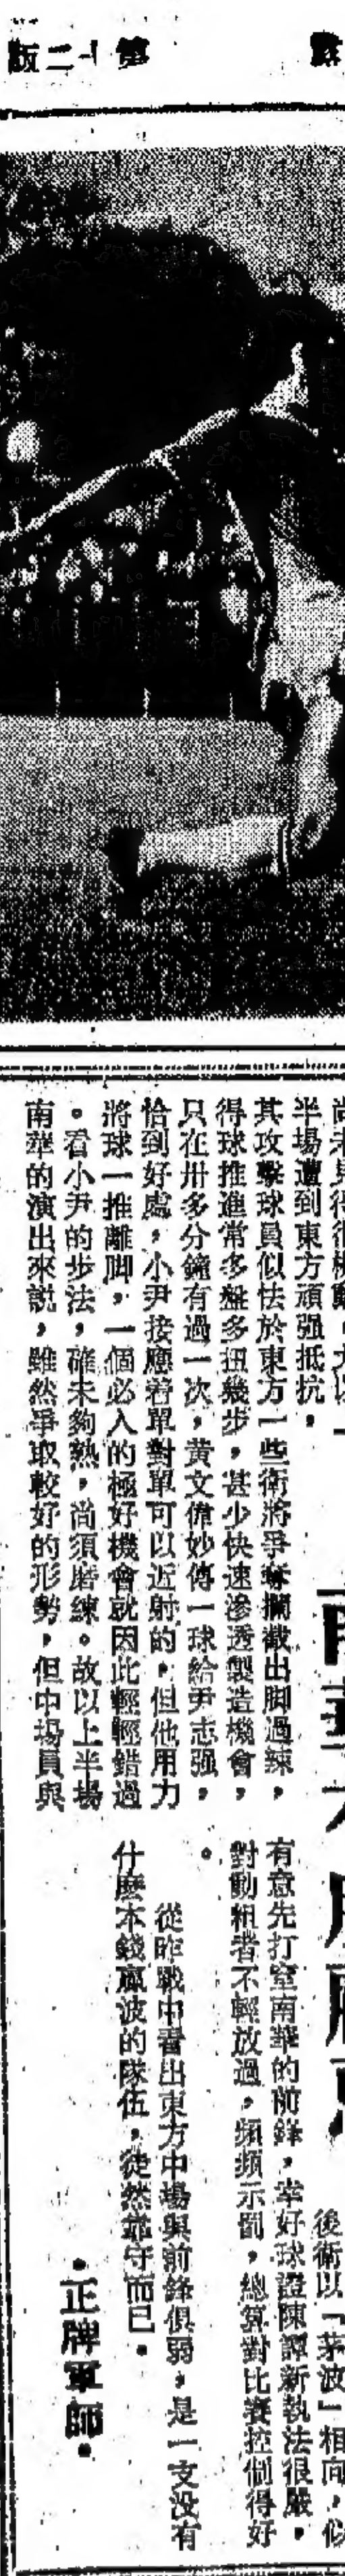 第十二版
半場遭到東方頑强抵抗，
其攻擊球員似怯於東方一些衛將爭奪攔截出脚過辣，
得球推進常多盤多扭幾步，甚少快速滲透製造機會，
只在卅多分鐘有過一次，黄文偉妙傳一球給尹志强，
恰到好處，小尹接應着單對單可以近射的，但他用力
將球一推離脚，一個必入的極好機會就因此輕輕錯過
。看小尹的步法，確未夠熟，尚須磨練。故以上半場
南華的演出來説，雖然爭取較好的形勢，但中場員與
後衛以「茅波」相向，似
有意先打窒南華的前鋒，幸好球證陳譚新執法很嚴，
對動粗者不輕放過，頻頻示罰，總算對比賽控制得好
。
從昨戰中看出東方中場與前鋒俱弱，是一支没有
什麽本錢贏波的隊伍，徒然靠守而已。
·正牌軍師·